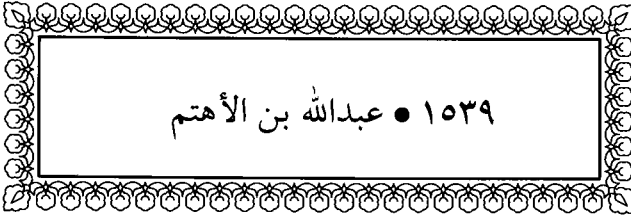 ١٥٣٩ ● عبدالله بن الأهتم